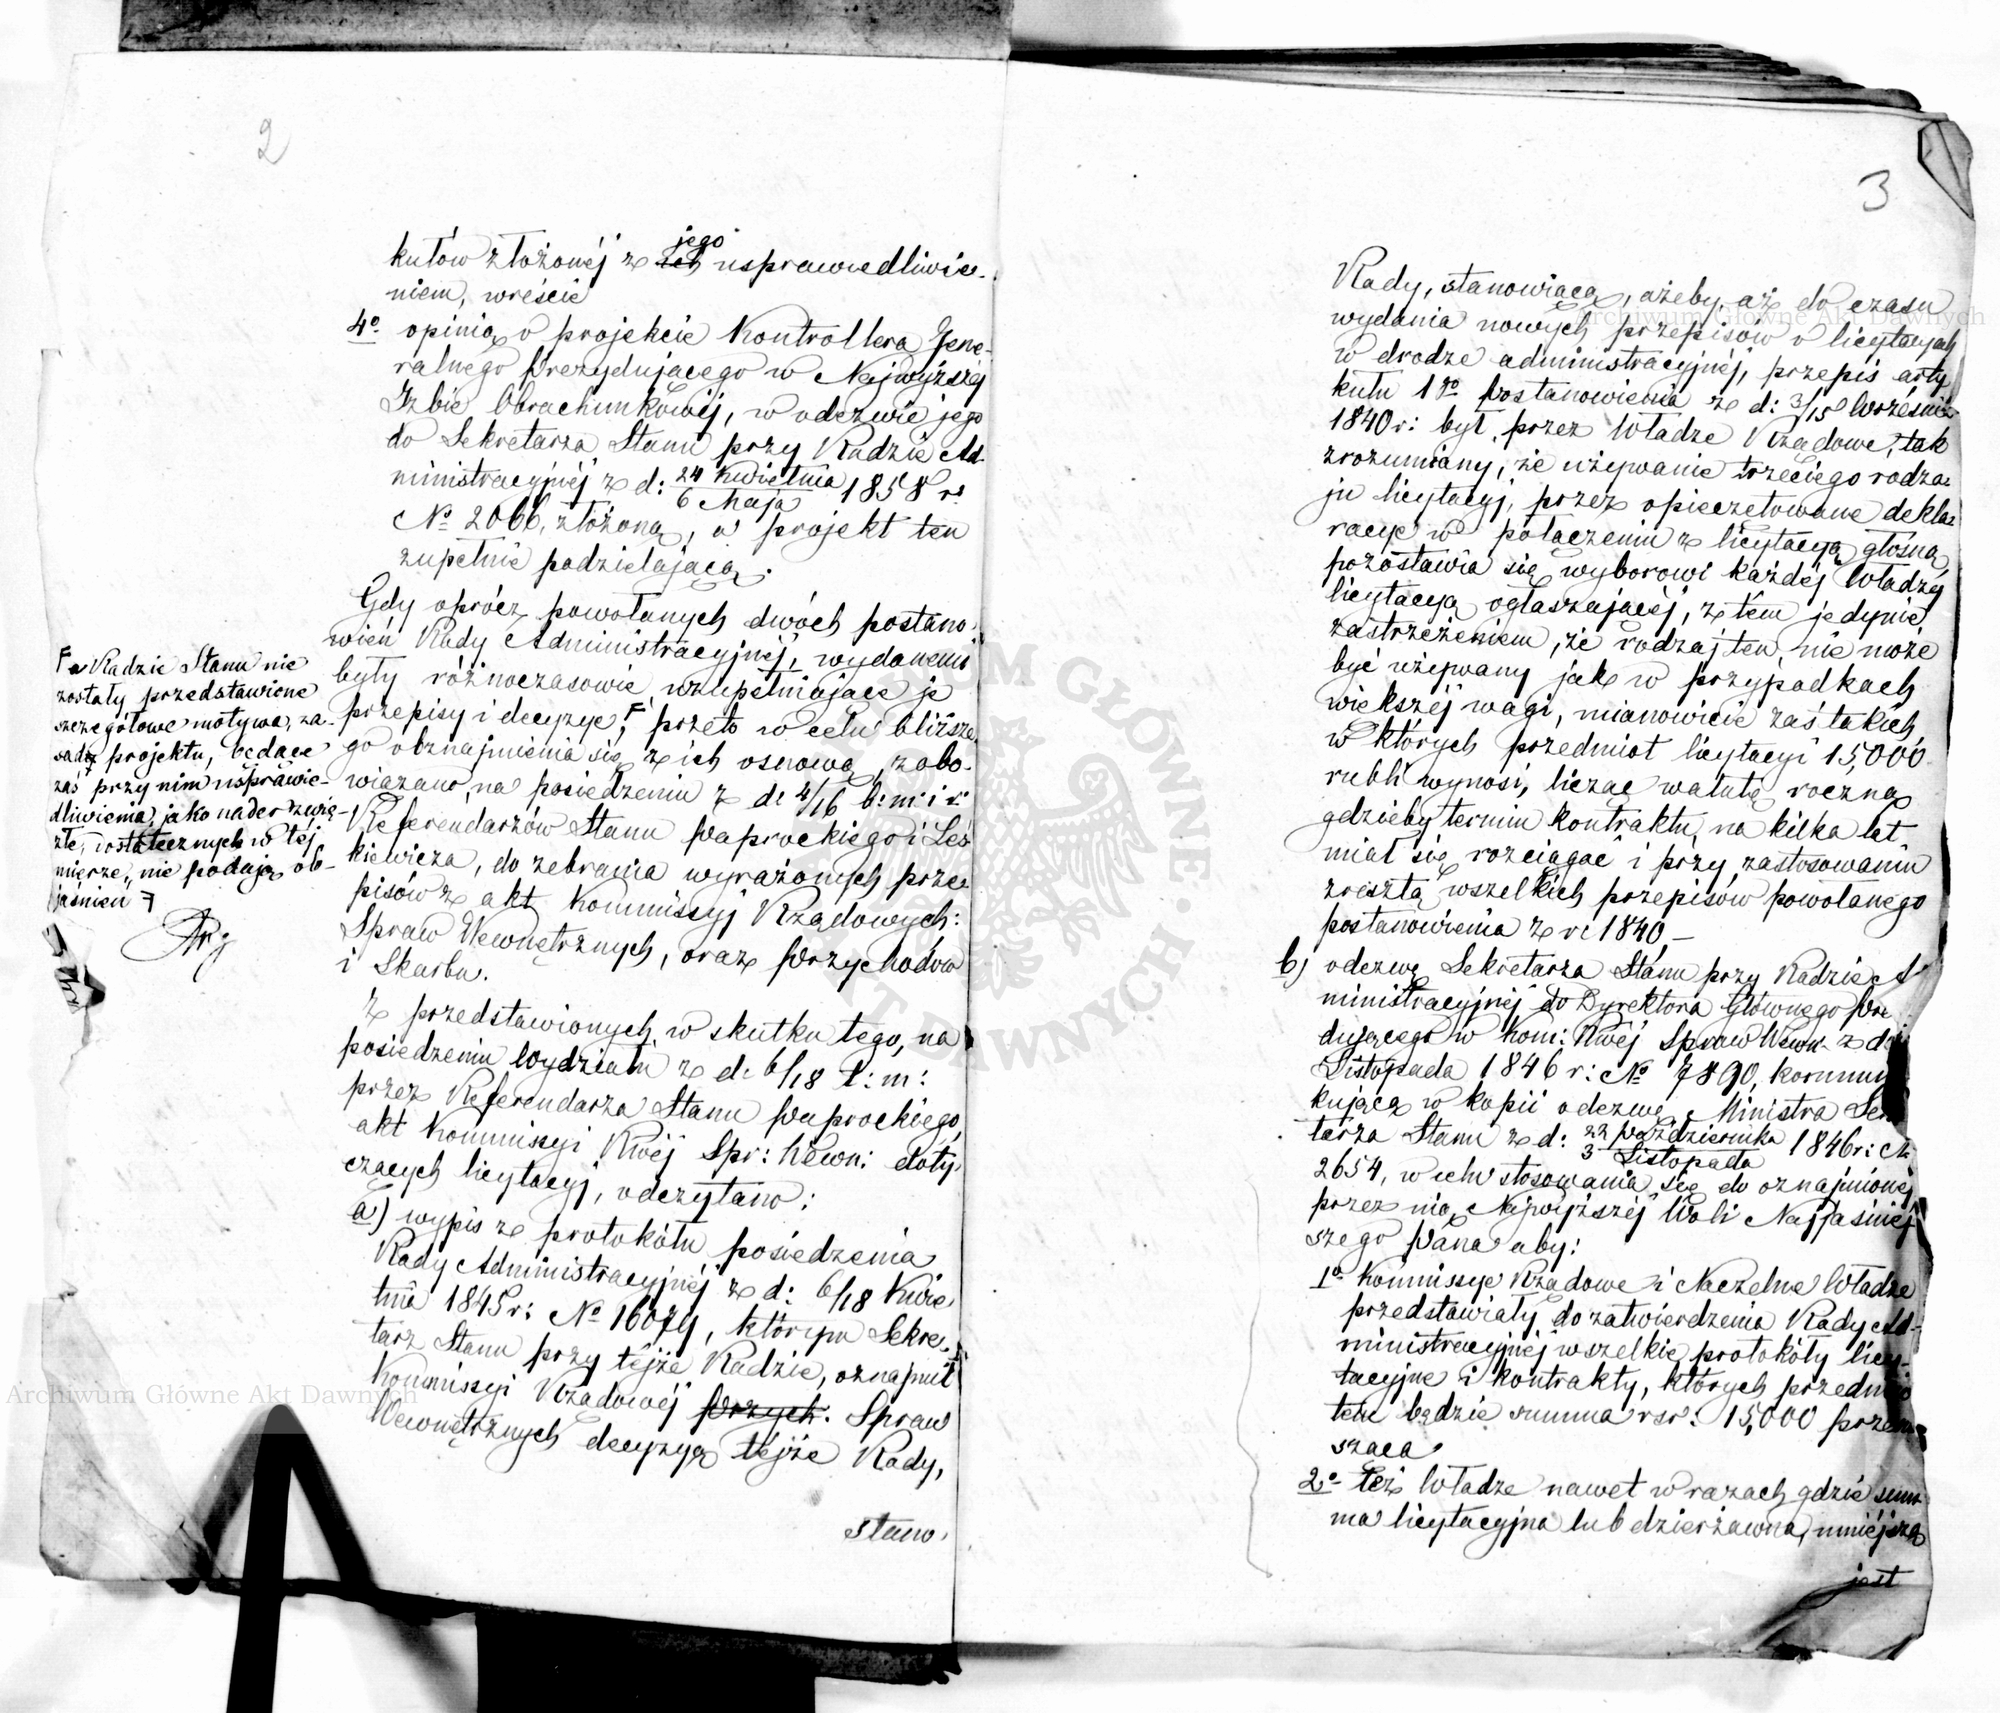 2
kułów złożonéj z jego usprawiedliwie-
niem, wreście
4o opinią o projekcie Kontrollera Jene-
ralnego Prezydującego w Najwyższéj
Izbie Obrachunkowéj, w odezwie jego
do Sekretarza Stanu przy Radzie Ad-
ministracyjnéj z d: 24 Kwietnia / 6 Maja 1858 r.
No 2066, złożoną, a projekt ten
zupełnie podzielającą.
Gdy oprócz powołanych dwóch postano-
wień Rady Administracyjnéj, wydanemi
były różnoczasowie uzupełniające je
przepisy i decyzye, F przeto w celu bliższe-
go obznajmienia się z ich osnową, zobo-
wiązano, na posiedzeniu z d: 4/16 b: m: i r:
Referendarzów Stanu Paprockiego i Leś-
kiewicza, do zebrania wyrażonych prze-
pisów z akt Kommissyj Rządowych:
Spraw Wewnętrznych, oraz Przychodów
i Skarbu.
Z przedstawionych w skutku tego, na
posiedzeniu Wydziału z d: 6/18 t: m:
przez Referendarza Stanu Paprockiego,
akt Kommissyi Rwéj Spr: Wewn: doty-
czących licytacyj, odczytano:
a) wypis z protokółu posiedzenia
Rady Administracyjnéj z d: 6/18 Kwie-
tnia 1845 r: No 16079, którym Sekre-
tarz Stanu przy téjże Radzie, oznajmił
Kommissyi Rządowéj Przych: Spraw
Wewnętrznych decyzyą téjże Rady,
stano-
F a Radzie Stanu nie
zostały przedstawione
szczegółowe motywa, za-
sady projektu, będące
zaś przy nim usprawie-
dliwienia, jako nader zwię-
złe, dostatecznych w téj
mierze, nie podają ob-
jaśnień F
3
Rady, stanowiącą, ażeby, aż do czasu
wydania nowych przepisów o licytacyach
w drodze administracyjnéj, przepis arty-
kułu 1go Postanowienia z d: 3/15 Września
1840 r: był, przez Władze Rządowe, tak
zrozumiany, że używanie trzeciego rodza-
ju licytacyj, przez opieczętowane dekla-
racye w połączeniu z licytacyą głośną
pozostawia się wyborowi każdéj Władzy
licytacyą ogłaszającéj, z tém jedynie
zastrzeżeniem, że rodzaj ten, nie może
być używany jak w przypadkach
większéj wagi, mianowicie zaś takich,
w których przedmiot licytacyi 15,000
rubli wynosi, licząc walutę roczną
gdzieby termin kontraktu, na kilka lat
miał się rozciągać i przy zastosowaniu
zresztą wszelkich przepisów powołanego
postanowienia z r: 1840.—
b) odezwę Sekretarza Stanu przy Radzie A
ministracyjnéj do Dyrektora Głównego Pre
dującego w Kom: Rwéj Spraw Wewn: z d:
Listopada 1846 r: No 7890, kommu
kującą w kopii odezwę Ministra Sek
tarza Stanu z d: 22 Października / 3 Listopada 1846 r: No
2654, w celu stosowania się do oznajmionéj
przez nią Najwyższéj Woli Najjaśniej-
szego Pana aby:
1o Kommissye Rządowe i Naczelne Władze
przedstawiały do zatwierdzenia Rady Ad-
ministracyjnéj wszelkie protokóły licy-
tacyjne i kontrakty, których przedmio-
tem będzie summa rsr: 15,000 przewy-
szaca
2o też Władze nawet w razach gdzie sum-
ma licytacyjna lub dzierżawna, mniejszą
jest
Archiwum Główne Akt Dawnych
Archiwum Główne Akt Dawnych
ARCHIWUM GŁÓWNE AKT DAWNYCH